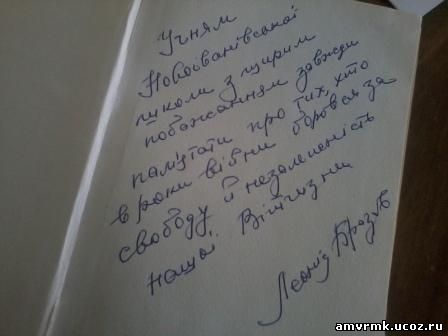 Учням
Новоіванівської
школи з щирим
побажанням завжди
пам'ятати про тих, хто
в роки війни боровся за
свободу й незалежність
нашої Вітчизни
Леонід
amvrmk.ucoz.ru